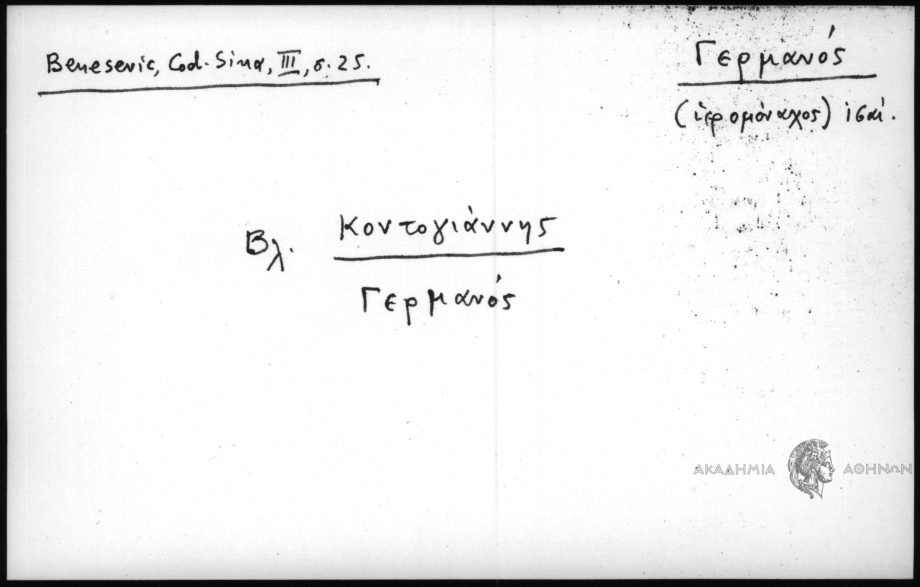 Benesevic, Cod. Sina, III, σ. 25.
Γερμανός
(ἱερομόναχος)
Βλ. Κοντογιάννης
Γερμανός
ΑΚΑΔΗΜΙΑ ΑΘΗΝΩΝ